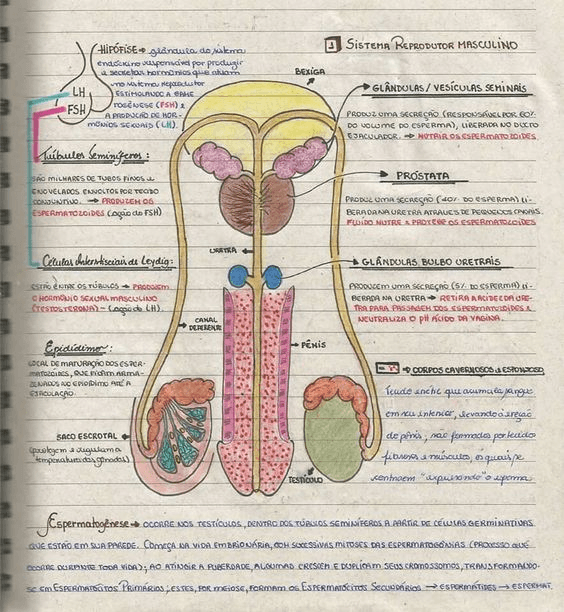 HIPÓFISE → glândula do sistema
endócrino responsável por produzir
e secretar hormônios que atuam
no sistema reprodutor
ESTIMULANDO A GAME
TOGÊNESE (FSH) E
A PRODUÇÃO DE HOR-
MÔNIOS SEXUAIS (LH).
LH
FSH
1 SISTEMA REPRODUTOR MASCULINO
BEXIGA
GLÂNDULAS / VESÍCULAS SEMINAIS
PRODUZ UMA SECREÇÃO (RESPONSÁVEL POR 60%
DO VOLUME DO ESPERMA), LIBERADA NO DUCTO
EJACULADOR. → NUTRIR OS ESPERMATOZOIDES.
Túbulos Seminíferos:
SÃO MILHARES DE TUBOS FINOS E
ENOVELADOS ENVOLTOS POR TECIDO
CONJUNTIVO. → PRODUZEM OS
ESPERMATOZOIDES (ação do FSH)
PRÓSTATA
PRODUZ UMA SECREÇÃO DO ESPERMA) LI-
BERADA NA URETRA ATRAVÉS DE PEQUENOS CANAIS.
FLUIDO NUTRE E PROTEGE OS ESPERMATOZOIDES
URETRA
Células Intersticiais de Leydig:
ESTÃO ENTRE OS TÚBULOS → PRODUZEM
O HORMÔNIO SEXUAL MASCULINO
(TESTOSTERONA) - (ação do LH).
GLÂNDULAS BULBO URETRAIS
PRODUZEM UMA SECREÇÃO (5% DO ESPERMA) LI-
BERADA NA URETRA → RETIRA A ACIDEZ DA URE-
TRA PARA PASSAGEM DOS ESPERMATOZOIDES E
NEUTRALIZA O pH ÁCIDO DA VAGINA.
CANAL
DEFERENTE
PÊNIS
Epidídimo:
LOCAL DE MATURAÇÃO DOS ESPER-
MATOZOIDES, QUE FICAM ARMA-
ZENADOS NO EPIDÍDIMO ATÉ A
EJACULAÇÃO.
→ CORPOS CAVERNOSOS E ESPONJOSO
Tecido erétil que acumula sangue
em seu interior, levando à ereção
do pênis, são formados por tecido
fibrosos e músculos, os quais, se
contraem "expulsando" o esperma
SACO ESCROTAL
(protegem e regulam a
temperatura das gônadas)
TESTÍCULO
Espermatogênese → OCORRE NOS TESTÍCULOS, DENTRO DOS TÚBULOS SEMINÍFEROS A PARTIR DE CÉLULAS GERMINATIVAS
QUE ESTÃO EM SUA PAREDE. COMEÇA NA VIDA EMBRIONÁRIA, COM SUCESSIVAS MITOSES DAS ESPERMATOGÔNIAS (PROCESSO QUE
OCORRE DURANTE TODA VIDA); AO ATINGIR A PUBERDADE, ALGUMAS CRESCEM E DUPLICAM SEUS CROMOSSOMOS, TRANSFORMANDO-
SE EM ESPERMATÓCITOS PRIMÁRIOS, ESTES, POR MEIOSE, FORMAM OS ESPERMATÓCITOS SECUNDÁRIOS → ESPERMÁTIDES → ESPERMAT.